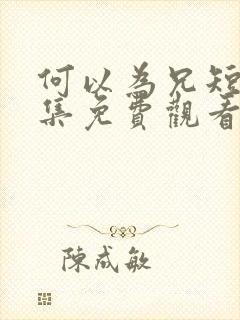 何以為兄短
集免費觀看
陳成敏